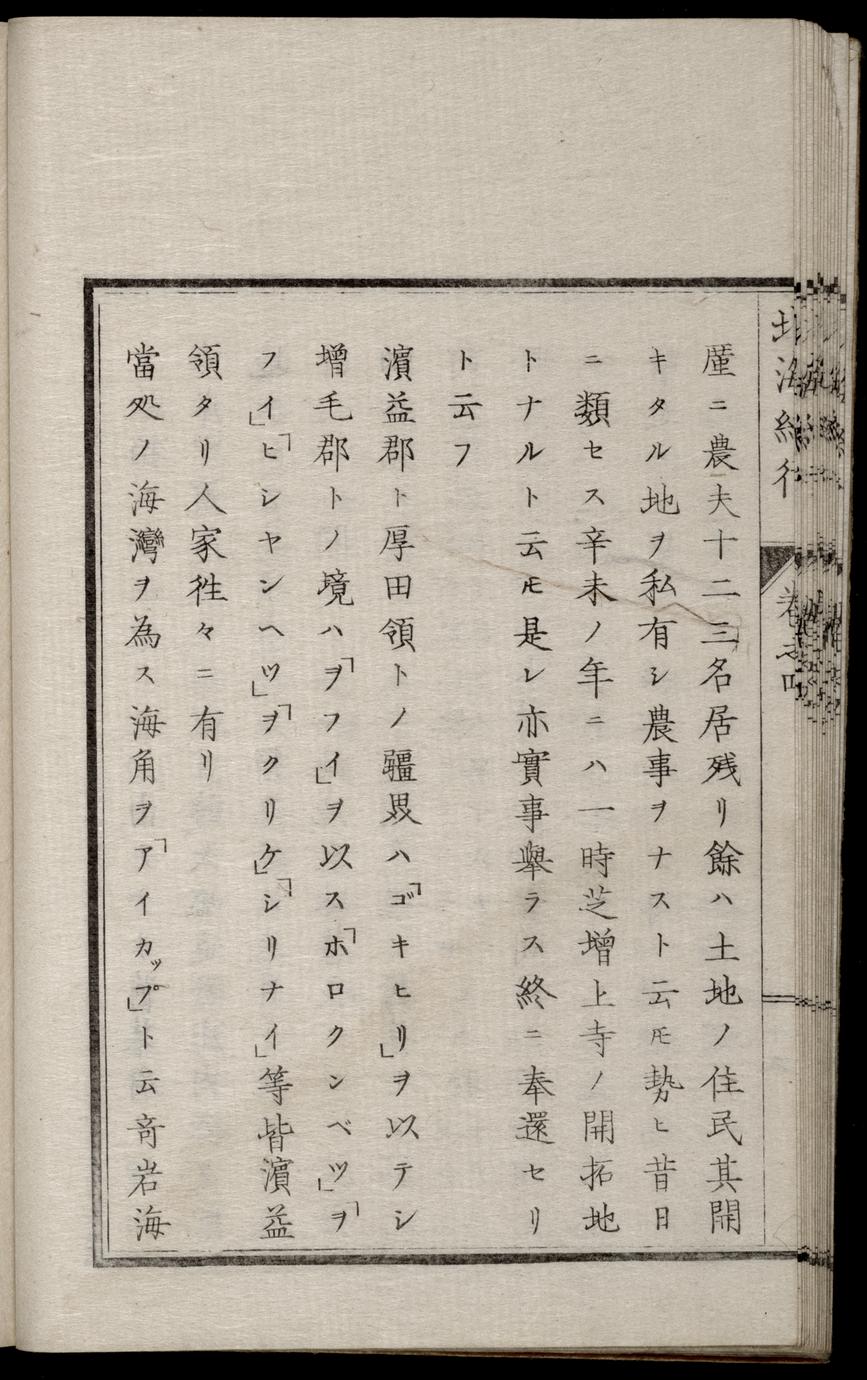 北海紀行 巻之四
厪ニ農夫十二三名居残リ餘ハ土地ノ住民其開
キタル地ヲ私有シ農事ヲナスト云ヒ勢ヒ昔日
ニ類セス辛未ノ年ニハ一時芝增上寺ノ開拓地
トナルト云𪜈是レ亦實事舉ラス終ニ奉還セリ
ト云フ
濵益郡ト厚田領トノ疆界ハ「ゴキヒリ」ヲ以テシ
增毛郡トノ境ハ「ヲフイ」ヲ以ス「ホロクンベツ」「ヲ
フイ」「ヒシヤンヘツ」「ヲクリケ」「シリナイ」等皆濵益
領タリ人家徃々ニ有リ
當処ノ海灣ヲ為ス海角ヲ「アイカップ」ト云竒岩海